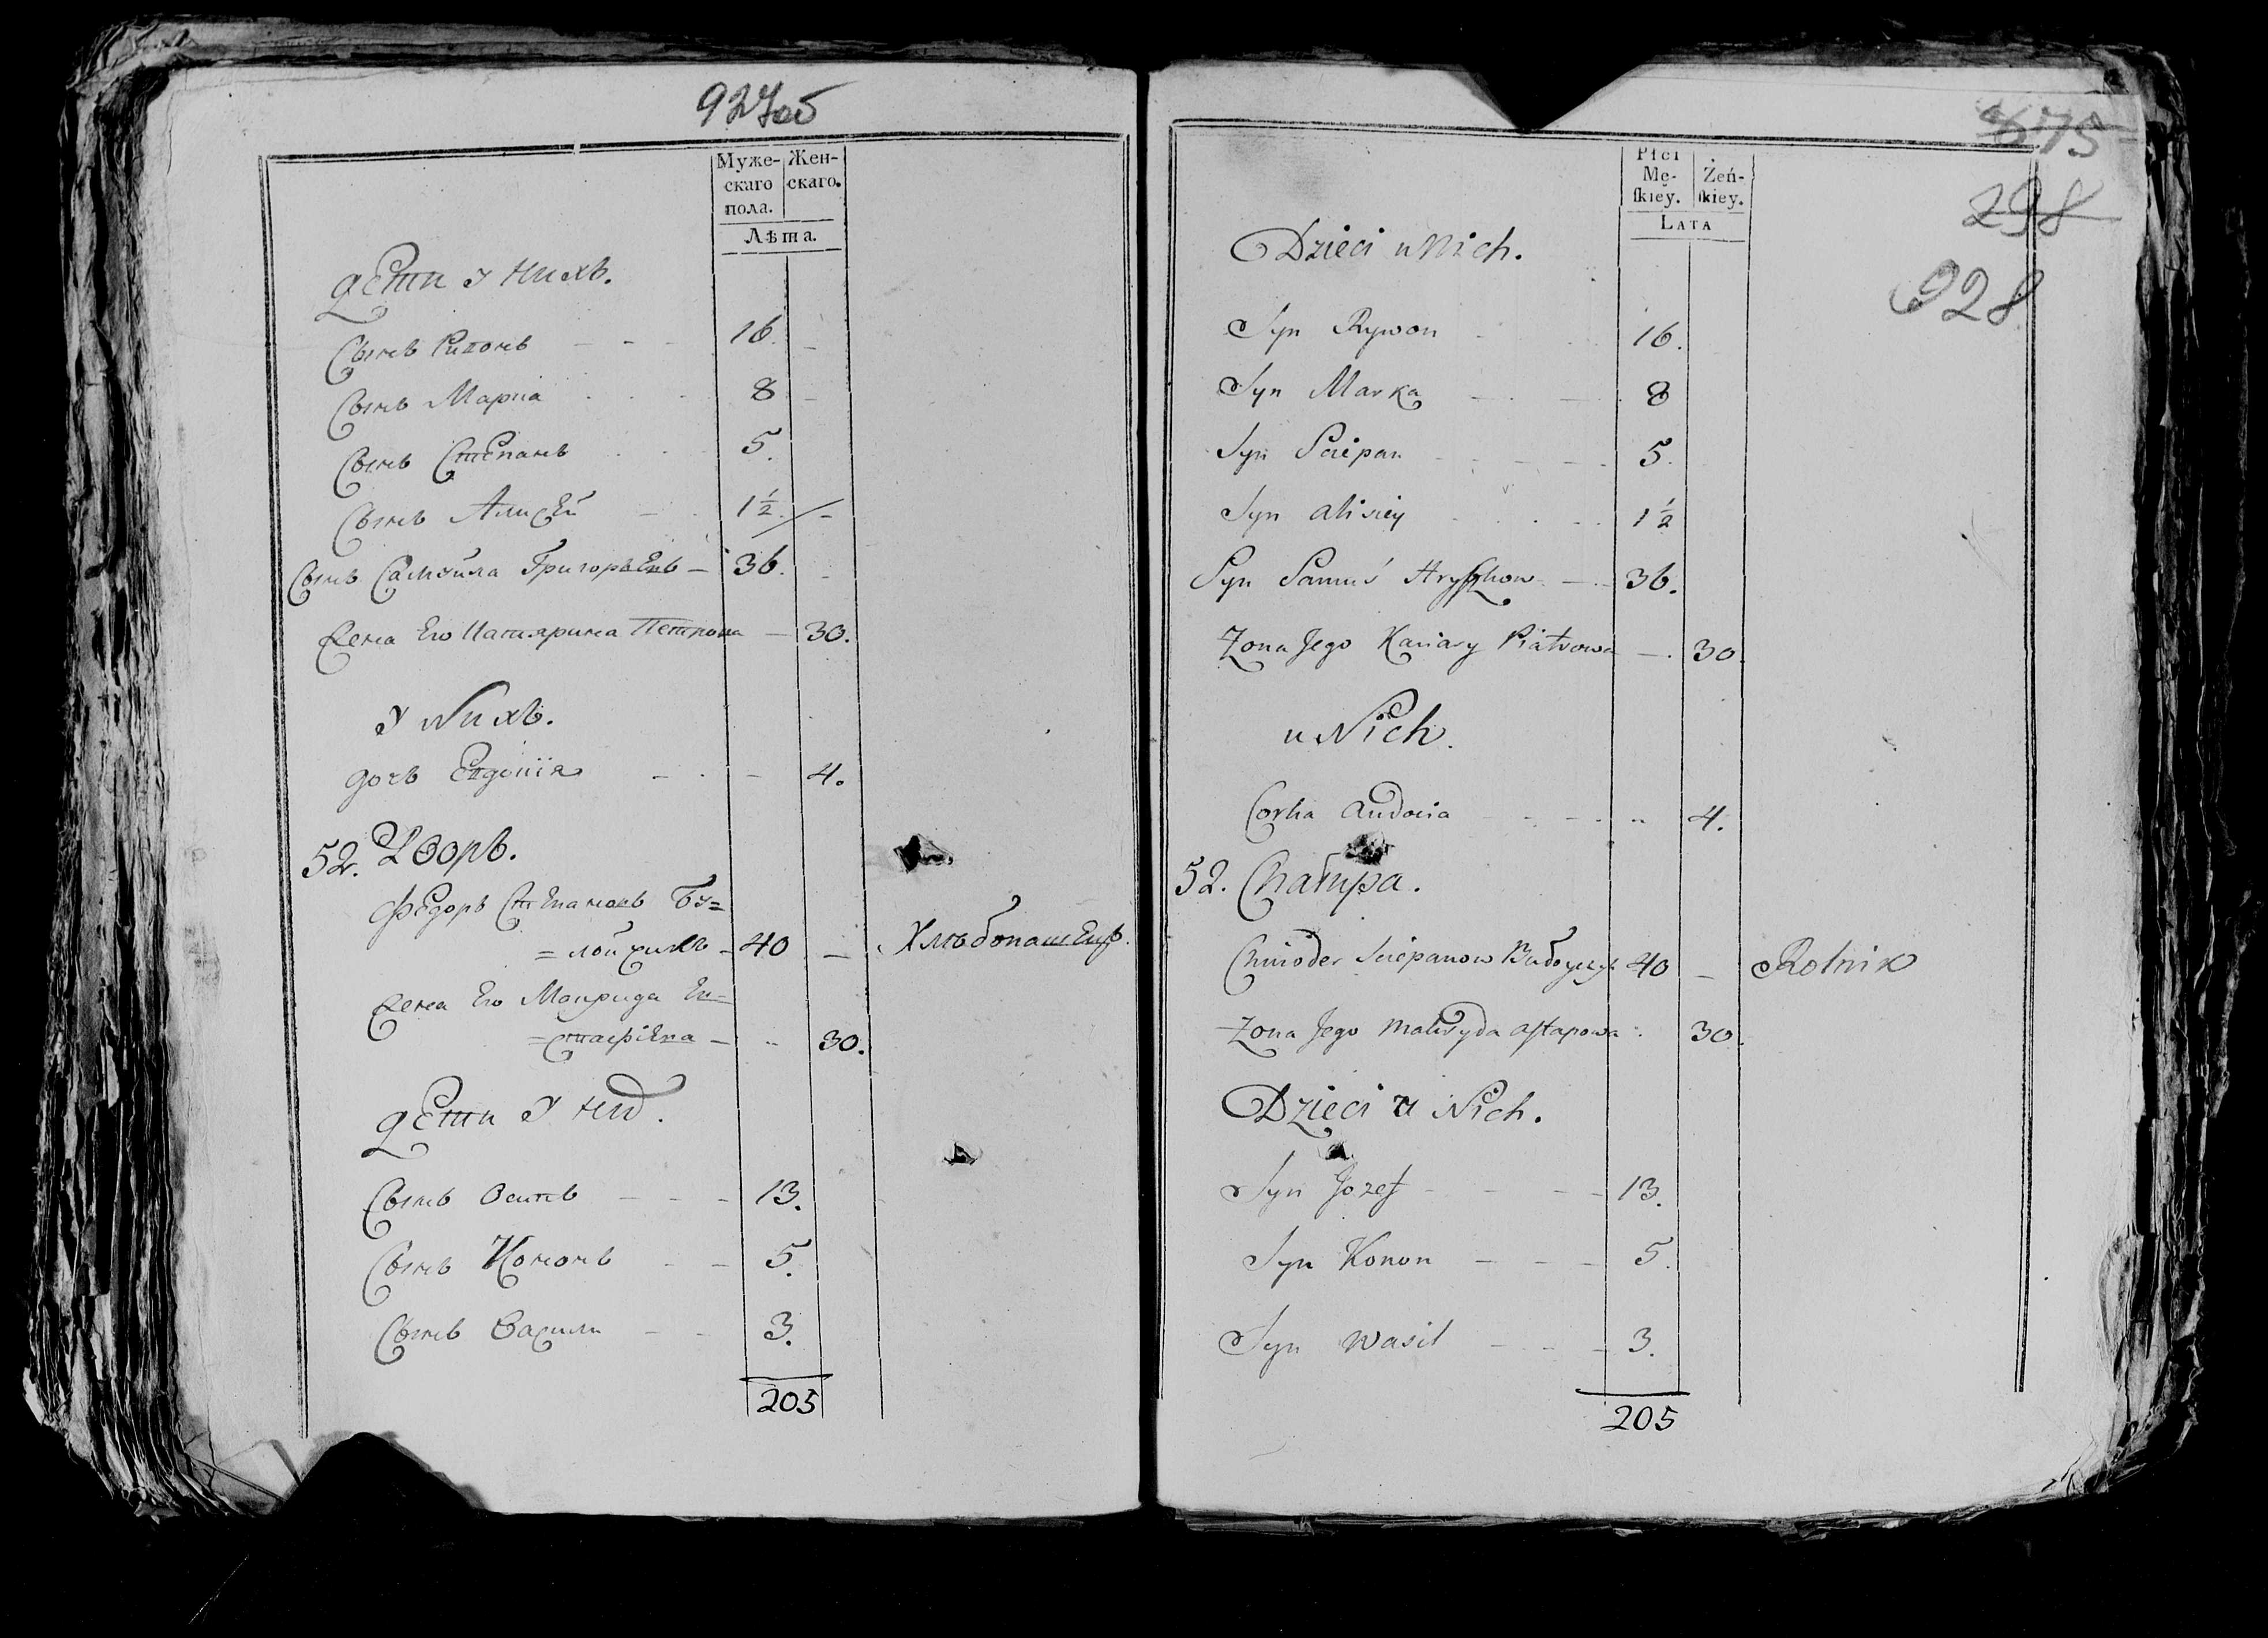 927об
Муже-
скаго
пола.
Жен-
скаго.
Лѣта.
дети у нихъ.
Сынъ Ривонъ 16.
Сынъ Марка 8
Сынъ Степанъ 5.
Сынъ Алисей 1½
Сынъ Самуйла Григорьевъ 36.
Жена Его Катярина Петрова 30.
У Нихъ.
дочь Евдокія 4.
52. Дворъ.
Федоръ Степановъ
40 Хлѣбопашецъ.
Жена Его Ев=
=стафіева 30.
дети У них.
Сынъ Осипъ 13.
Сынъ Кононъ 5.
Сынъ Васили 3.
205
875
298
928
Płci
Mę-
ſkiey.
Żeń-
ſkiey.
Lata
Dzieci u Nich.
Syn Rywon 16.
Syn Marka 8
Syn Sciepan 5.
Syn Alisiey 1½
Syn Samuś Hryſzkow 36.
Zona Jego Piatrowa 30.
u Nich.
Corka Audocia 4.
52. Chałupa.
Chwioder Sciepanow 40 Rolnik
Zona Jego Makryda Aſtapowa 30.
Dzieci u Nich.
Syn Jozef 13.
Syn Konon 5.
Syn Wasil 3.
205